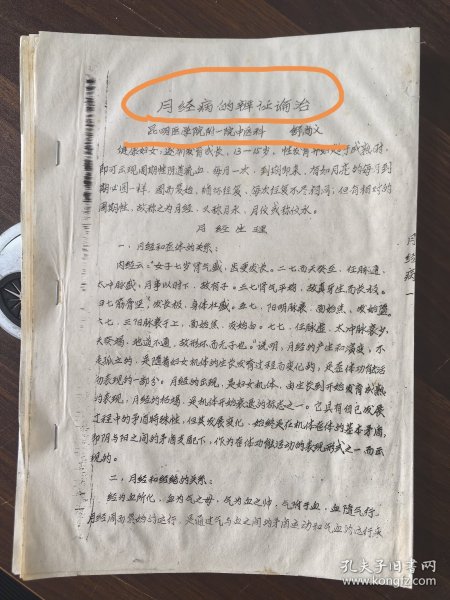 月经病的辨证论治
昆明医学院附一院中医科 舒尚义
健康妇女,逐渐发育成长,13—15岁,性发育
即可出现周期性阴道流血,
期出因一样,周而复始,循环往复,每次往复不尽相同;但有相对的
周期性,故称之为月经,又称月水,月信或称
月经生理
一、月经和整体的关系:
内经云:“女子七岁肾气盛,齿更发长。二七而天癸至,任脉通,
太冲脉盛,月事以时下,故有子。三七肾气平均,故真牙生而长极。
四七筋骨坚,发长极,身体壮盛。五七,阳明脉衰,面始焦,发始堕
六七,三阳脉衰于上,面始焦,发始白。七七,任脉虚,太冲脉衰少
天癸竭,地道不通,故形坏而无子也。”说明,月经的产生和演变,不
是孤立的,是随着妇女机体的生长发育过程而变化的,是整体功能活
动表现的一部分。月经的出现,是妇女机体,由生长到开始发育成熟
的表现,月经的枯竭,是机体开始衰退的标志之一。它具有自己发展
过程中的矛盾特殊性,但其发展变化,始终是在机体整体的基本矛盾,
即阴与阳之间的矛盾支配下,作为整体功能活动的表现形式之一而出
现的。
二、月经和经络的关系:
经为血所化,血为气之母,气为血之帅,气行于血,血随气行。
月经周而复始的运行,是通过气与血之间的矛盾运动和气血的运行来
月经病一
孔夫子旧书网
www.kongfz.com